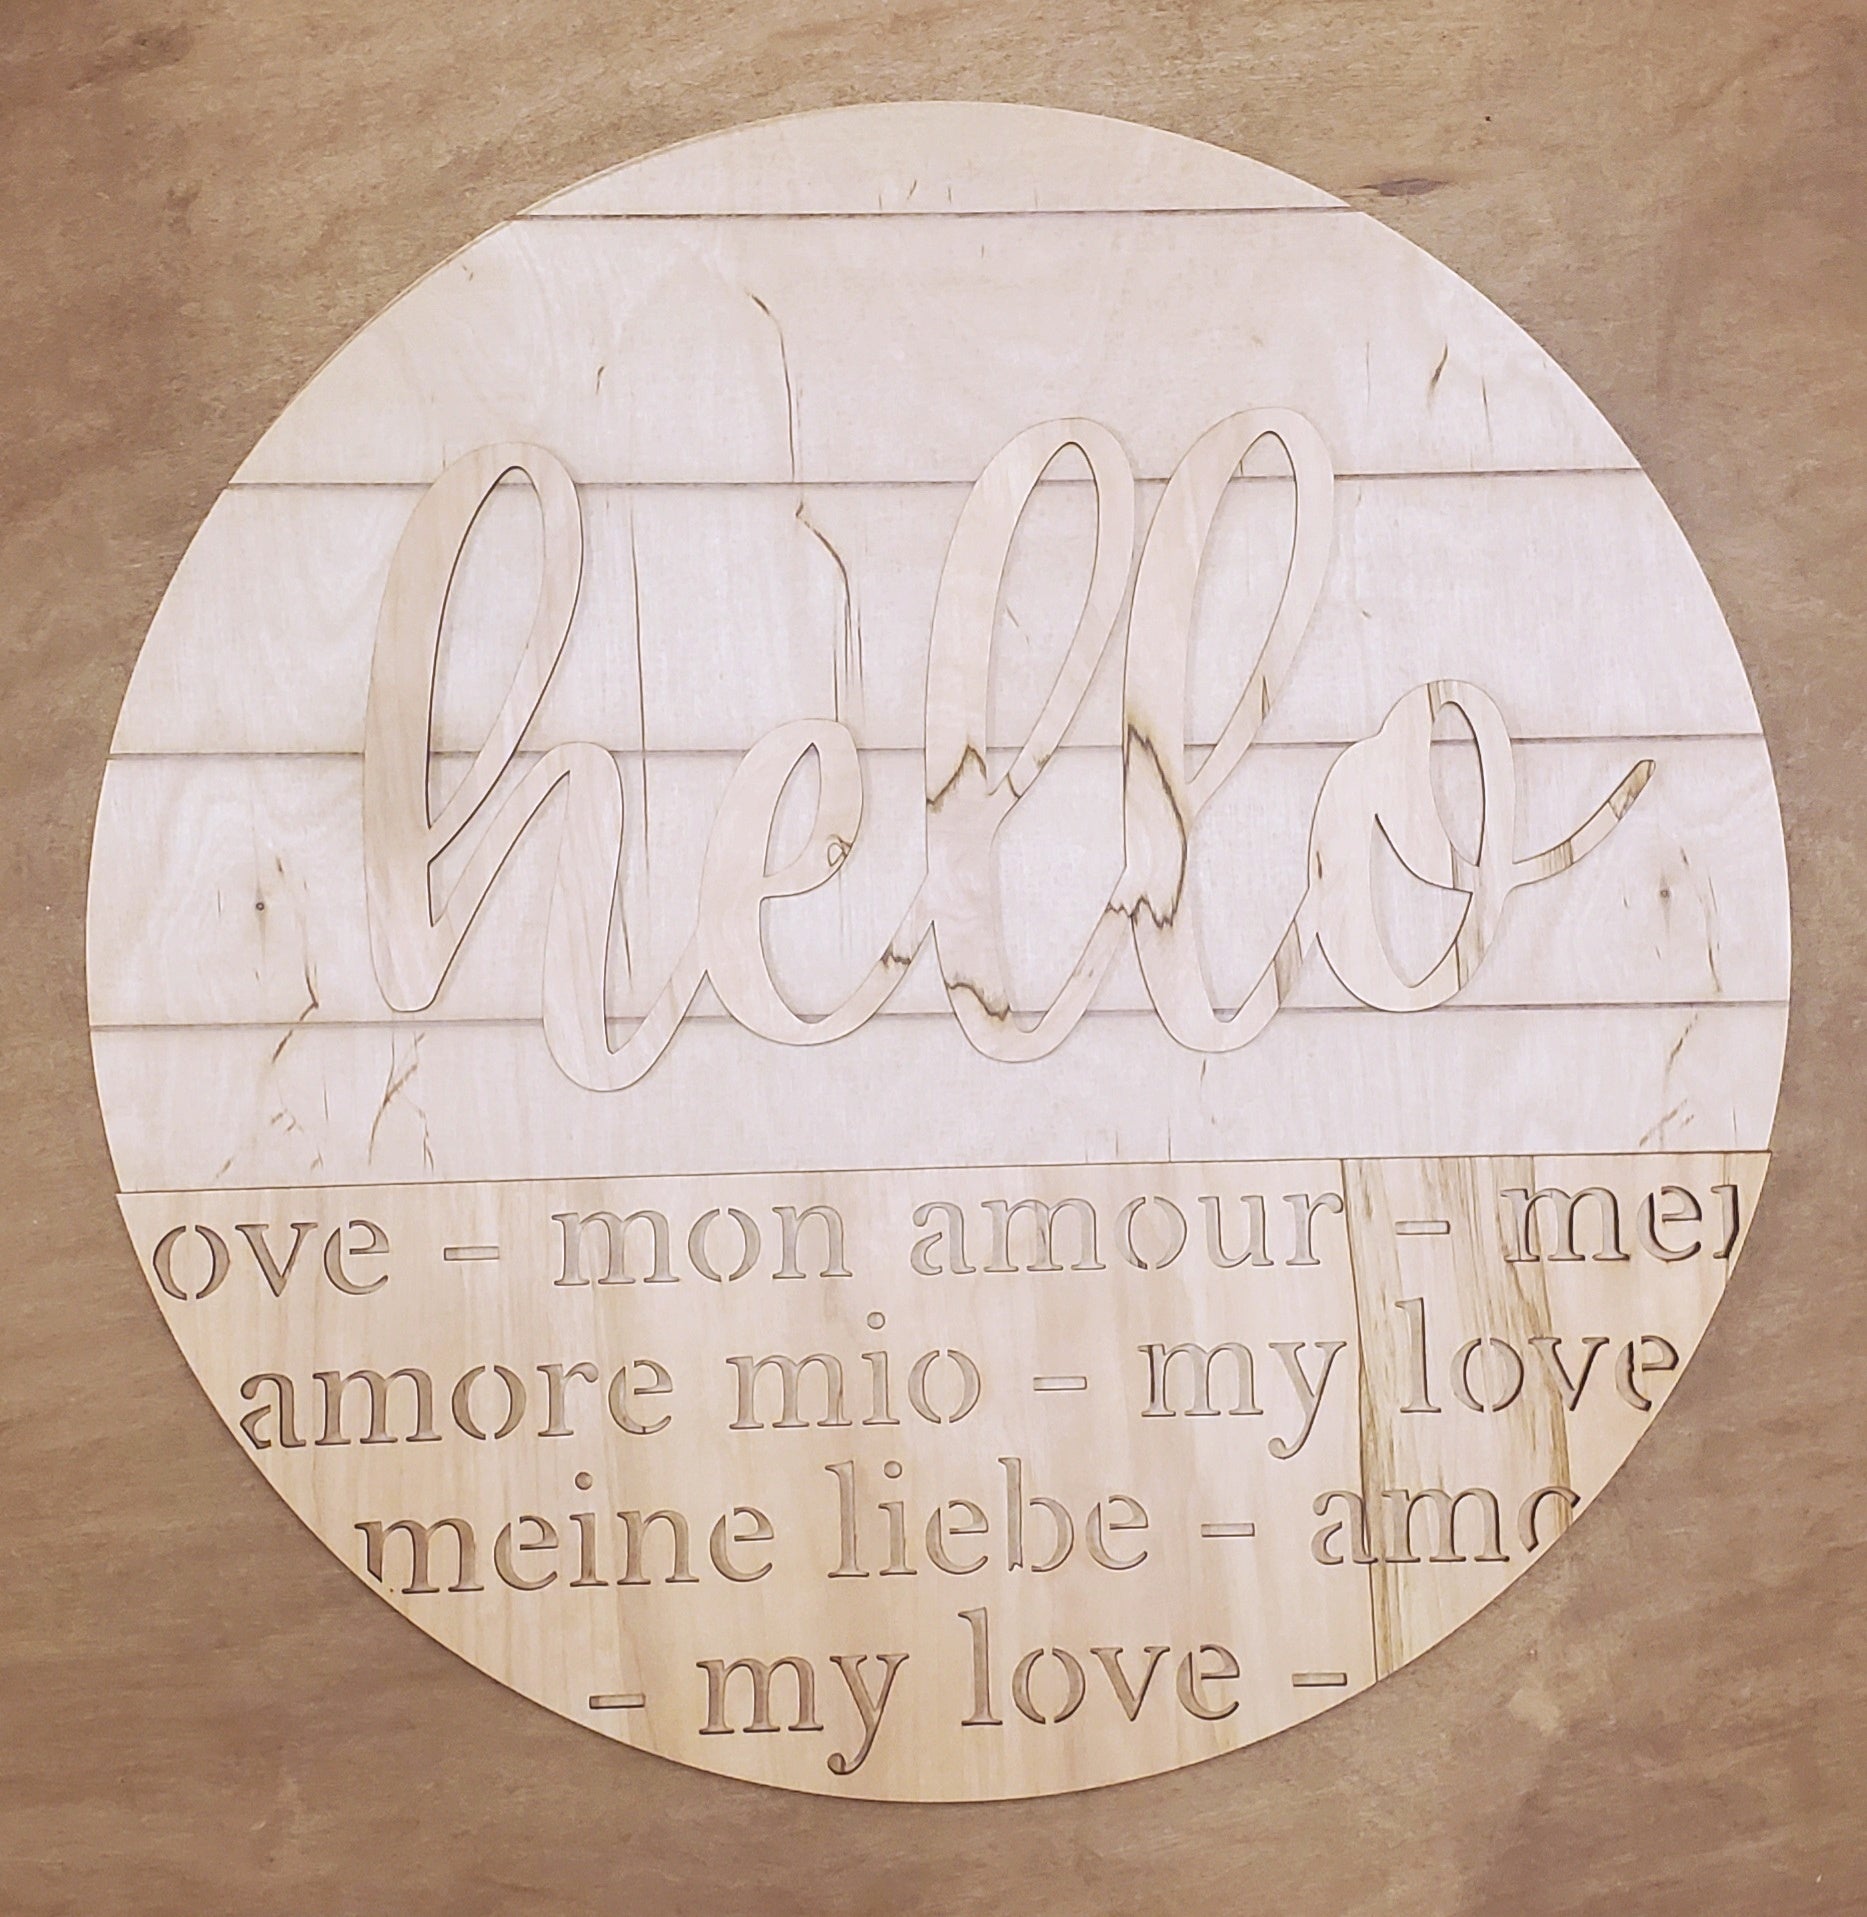 hello
ove - mon amour - mei
amore mio - my love
meine liebe - amo
- my love -